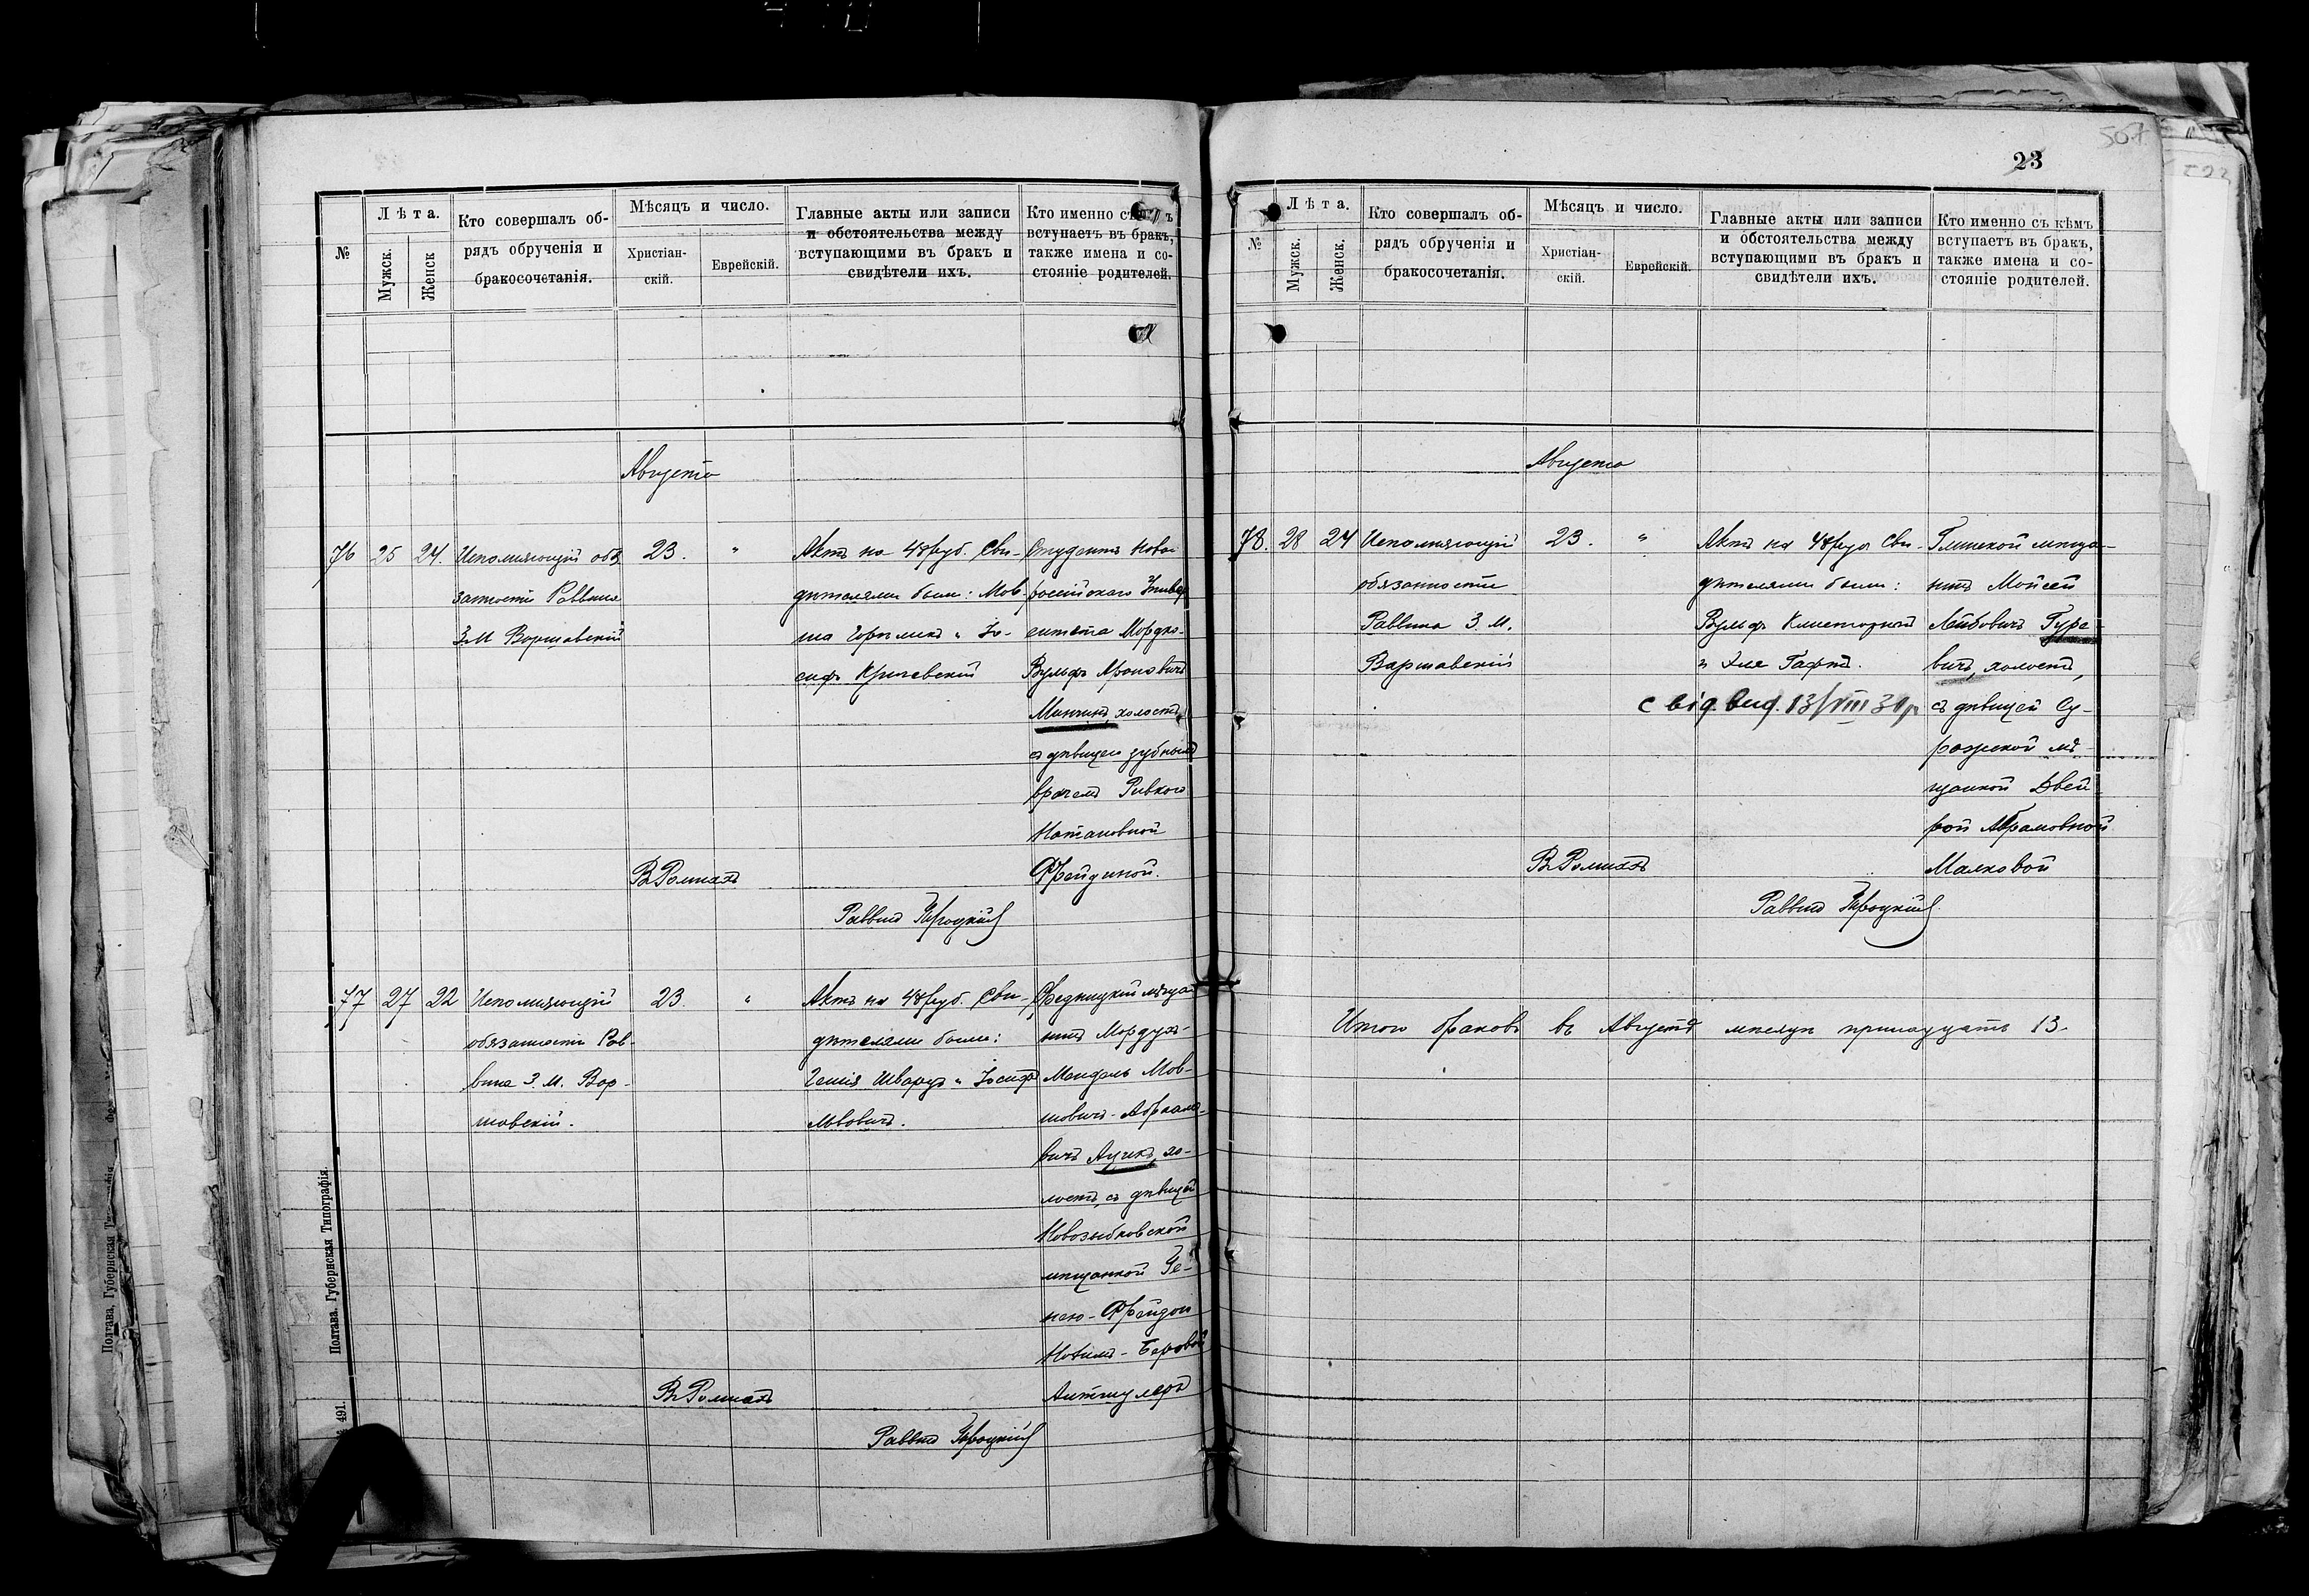 23
№
Лѣта.
Мужск.
Женск
Кто совершалъ об-
рядъ обрученія и
бракосочетанія.
Мѣсяцъ и число.
Христіан-
скій.
Еврейскій.
Главные акты или записи
и обстоятельства между
вступающими въ бракъ и
свидѣтели ихъ.
Кто именно съ
вступаетъ въ бракъ,
также имена и со-
стояніе родителей.
Августа
76 25 24. Исполняющій обя
занности Раввина
З. М. Варшавскій
23. "
Актъ на 48 руб. Сви-
дѣтелями были: Мов-
ша Горѣликъ и Іо-
сифъ Кричевскій
Студентъ Ново
россійскаго Универ
ситета Мордко-
Вульфъ Ароновичъ
Минчинъ, холостъ,
съ дѣвицею зубнымъ
врачемъ Ривкою
Натановной
Фрейдиной.
Въ Ромнахъ
Раввинъ
77 27 22 Исполняющій
обязанности Рав-
вина З. М. Вар-
шавскій.
23. "
Актъ на 48 руб. Сви-
дѣтелями были:
Шварцъ и Іосифъ
Львовичъ.
мѣща
нинъ Мордухъ-
Мендель Мов-
шовичъ-Абрамо-
вичъ хо-
лостъ, съ дѣвицей
Новозыбковской
мѣщанкой Ге-
нею-Фрейдой
Беровой
Альтшулеръ
Въ Ромнахъ
Раввинъ
Полтава. Губернская Типографія.
491.
№
Лѣта.
Мужск.
Женск.
Кто совершалъ об-
рядъ обрученія и
бракосочетанія.
Мѣсяцъ и число.
Христіан-
скій.
Еврейскій.
Главные акты или записи
и обстоятельства между
вступающими въ бракъ и
свидѣтели ихъ.
Кто именно съ кѣмъ
вступаетъ въ бракъ,
также имена и со-
стояніе родителей.
Августа
78. 28 24 Исполняющій
обязанности
Раввина З. М.
Варшавскій
23. "
Актъ на 48 руб Сви-
дѣтелями были:
Вульфъ
и Эле Гафтъ.
с від. вид. 13/VIII 31 р
Глинскій мѣща-
нинъ Мойсей
Лейбовичъ Гуре-
вичъ, холостъ,
съ дѣвицей Су-
ражской мѣ-
щанкой Двей-
рой Абрамовной
Малковой
Въ Ромнахъ
Раввинъ
Итого браковъ въ Августѣ мѣсяцѣ тринадцать 13.